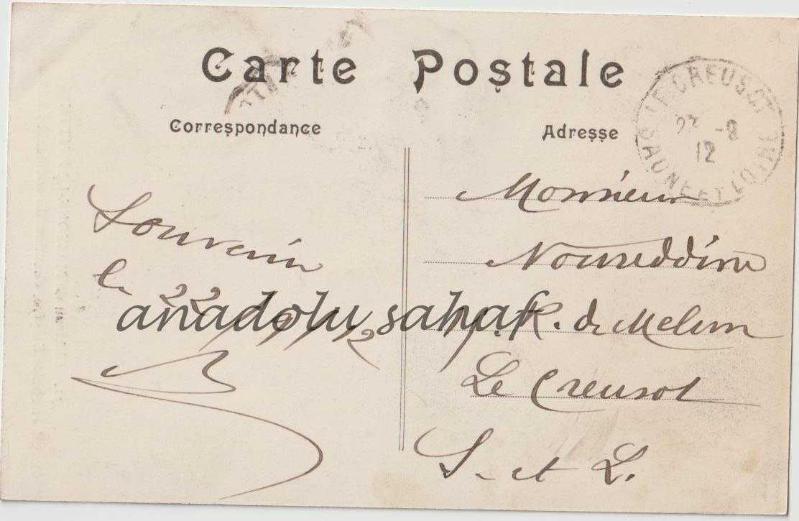 Carte Postale
Correspondance
Adresse
LE CREUSOT
SAONE ET LOIRE
12
Souvenir
le 22
anadolu sahaf
Monsieur
Noureddine
R. de Melun
Le Creusot
S. et L.